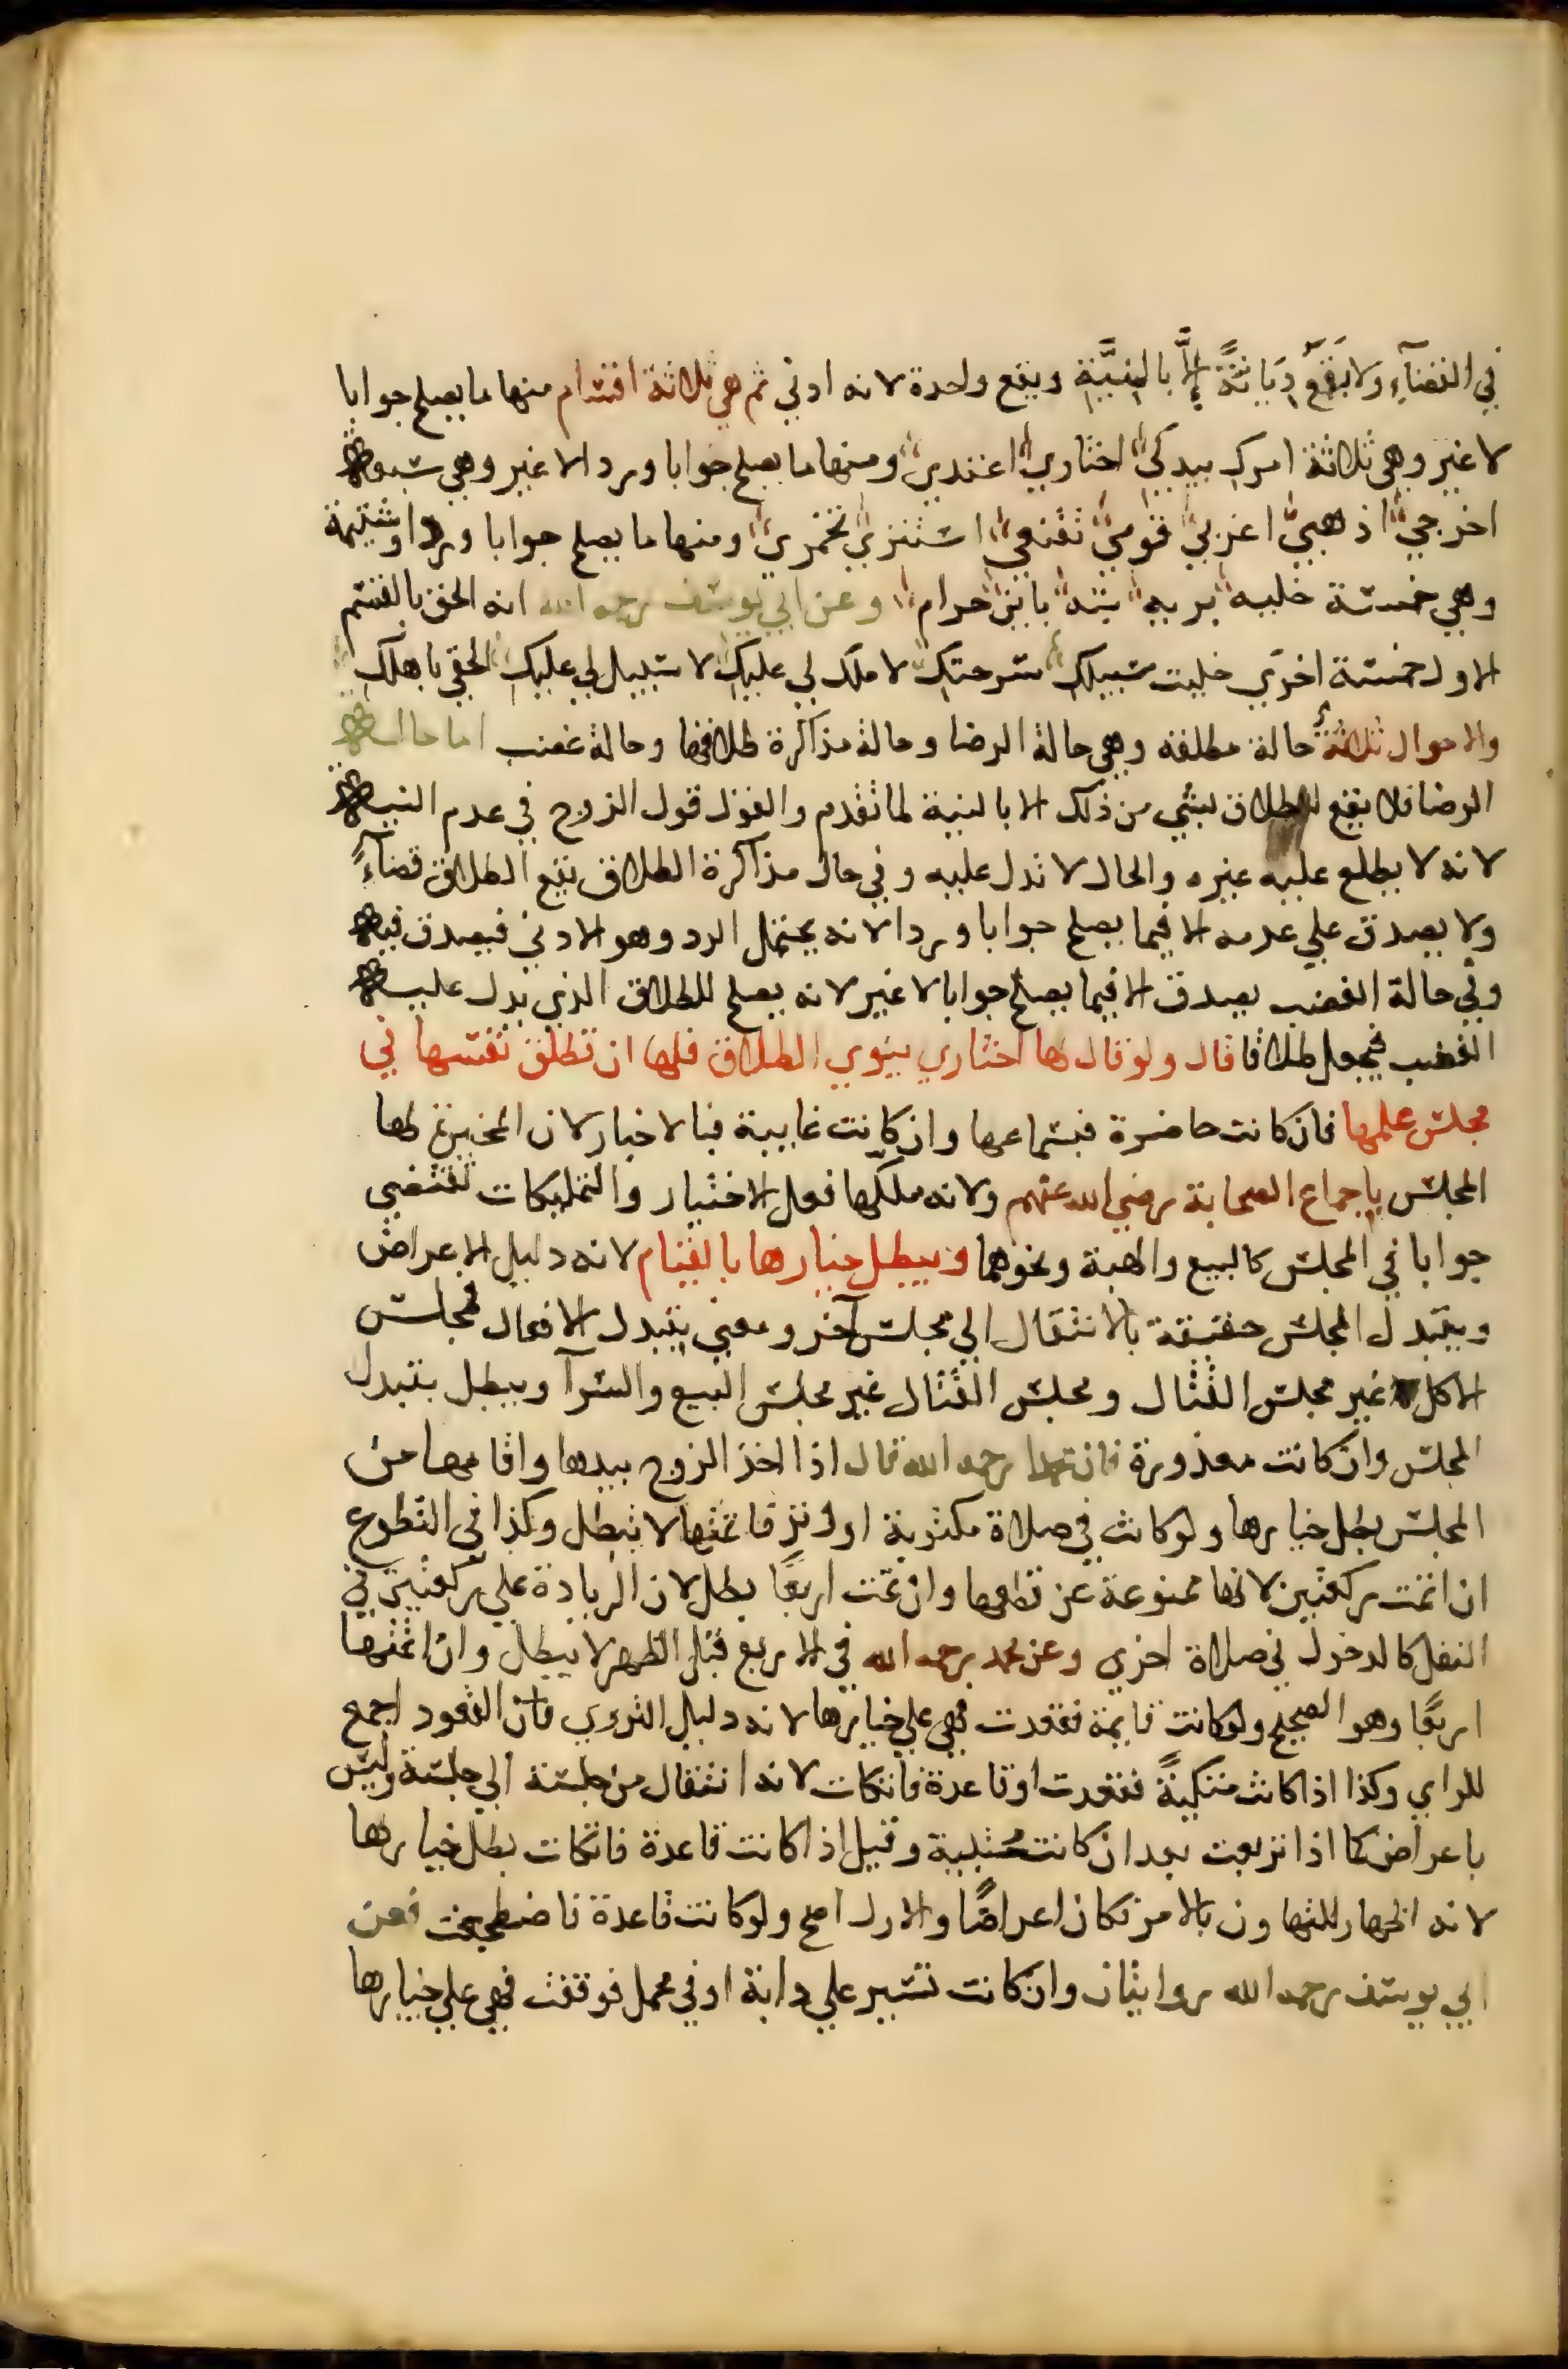 في القضآءِ ولا يَقَعُ دِيَانَةً إِلَّا بالنِيَّةِ ويقع واحدة لانه ادني ثم هي ثلاثة اقسام منها ما يصلح جوابا
لا غير وهي ثلاثة امرك بيدكي اختاري اعتدي ومنها ما يصلح جوابا وردا لا غير وهي سبعة
اخرجي اذهبي اعزبي قومي تقنعي استتري تخمري ومنها ما يصلح جوابا وردا وشتيمة
وهي خمسة خليه بريه بته باين حرام وعن ابي يوسف رحمه الله انه الحق بالقسم
الاول خمسة اخري خليت سبيلك سرحتك لا ملك لي عليك لا سبيل لي عليك الحقي باهلك
والاحوال ثلاثةٌ حالة مطلقه وهي حالة الرضا وحالة مذاكرة طلاقها وحالة غضب اما حالة
الرضا فلا يقع الطلاق لبشي من ذلك الا بالنية لما تقدم والقول قول الزوج في عدم النية
لانه لا يطلع عليه غيره والحال لا تدل عليه وفي حال مذاكرة الطلاق يقع الطلاق قضآءً
ولا يصدق علي عدمه الا فيما يصلح جوابا وردا لانه يحتمل الرد وهو الادني فيصدق فيه
وفي حالة الغضب يصدق الا فيما يصلح جوابا لا غير لانه يصلح للطلاق الذي يدل عليه
الغضب فيجعل طلاقا قال ولو قال لها اختاري ينوي الطلاق فلها ان تطلق نفسها في
مجلس علمها فان كانت حاضرة فبسماعها وان كانت غايبة فبالاخبار لان المخيرة لها
المجلس باجماع الصحابة رضي الله عنهم ولانه ملكها فعل الاختيار والتمليكات تقتضي
جوابا في المجلس كالبيع والهبة ونحوهما ويبطل خيارها بالقيام لانه دليل الاعراض
ويتبدل المجلس حقيقة بالانتقال الي مجلس آخر ومعني بتبدل الافعال فمجلس
الاكل غير مجلس القتال ومجلس القتال غير مجلس البيع والشرآ ويبطل بتبدل
المجلس وان كانت معذورة فان محمدا رحمه الله قال اذا اخذ الزوج بيدها واقامها من
المجلس بطل خيارها ولو كانت في صلاة مكتوبة او وتر فاتمتها لا يبطل وكذا في التطوع
ان اتمت ركعتين لانها ممنوعة عن قطعها وان تمت اربعًا بطل لان الزيادة علي ركعتين في
النفل كالدخول في صلاة اخري وعن محمد رحمه الله في الاربع قبل الظهر لا يبطل وان اتمتها
اربعًا وهو الصحيح ولو كانت قايمة فقعدت فهي علي خيارها لانه دليل التروي فان القعود اجمع
للراي وكذا اذا كانت متكيةً فقعدت او قاعدة فاتكات لانه انتقال من جلسة الي جلسة وليس
باعراض كما اذا تربعت بعد ان كانت مُحتبية وقيل اذا كانت قاعدة فاتكات بطل خيارها
لانه اظهار للتهاون بالامر فكان اعراضًا والاول اصح ولو كانت قاعدة فاضطجعت فعن
ابي يوسف رحمه الله روايتان وان كانت تسير علي دابة او في محمل فوقفت فهي علي خيارها